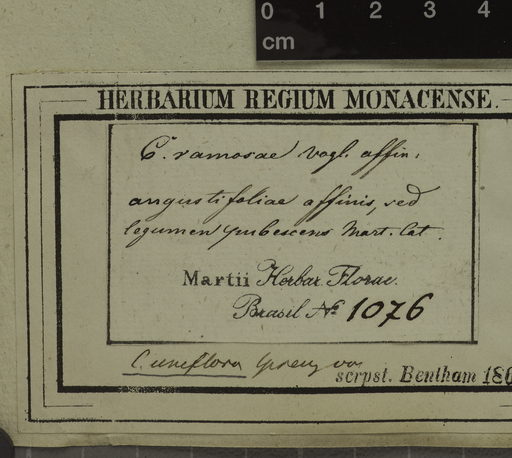 0 1 2 3 4
cm
HERBARIUM REGIUM MONACENSE.
C. ramosae Vogl. affin:
angustifoliae affinis, sed
legumen pubescens Mart. Cat.
Martii Herbar. Florae
Brasil No 1076
C. uniflora Spreng var
scrpst. Bentham 186